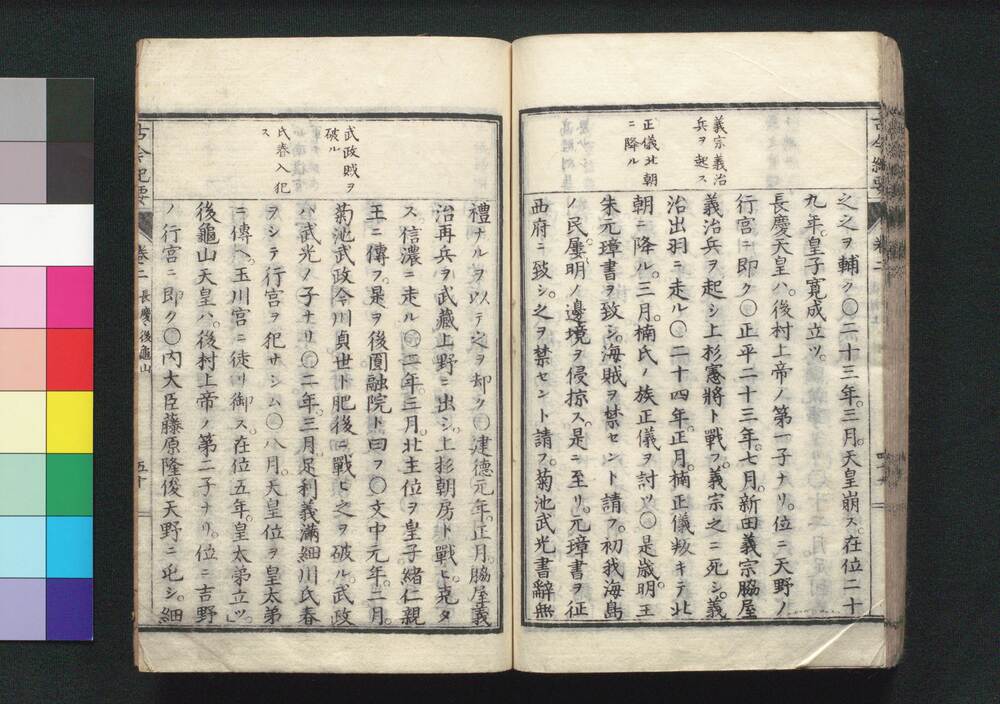 義宗義治
兵ヲ起ス
正儀北朝
ニ降ル
之之ヲ輔ク〇二十三年。三月。天皇崩ス。在位二十
九年。皇子寛成立ツ。
長慶天皇ハ。後村上帝ノ第一子ナリ。位ニ天野ノ
行宮ニ即ク〇正平二十三年。七月。新田義宗脇屋
義治兵ヲ起シ上杉憲將ト戰フ。義宗之ニ死シ。義
治出羽ニ走ル〇二十四年。正月。楠正儀叛キテ北
朝ニ降ル。三月。楠氏ノ族正儀ヲ討ツ〇是歳。明王
朱元璋書ヲ致シ。海賊ヲ禁セント請フ。初我海島
ノ民屢明ノ邊境ヲ侵掠ス。是ニ至リ。元璋書ヲ征
西府ニ致シ。之ヲ禁セント請フ。菊池武光書辭無
古今紀要
卷二
武政賊ヲ
破ル
氏春入犯
ス
禮ナルヲ以テ之ヲ却ク〇建德元年。正月。脇屋義
治再兵ヲ武藏上野ニ出シ。上杉朝房ト戰ヒ。克タ
ス信濃ニ走ル〇二年。三月。北主位ヲ皇子緒仁親
王ニ傳フ。是ヲ後圓融院ト曰フ〇文中元年。二月。
菊池武政今川貞世ト肥後ニ戰ヒ之ヲ破ル。武政
ハ武光ノ子ナリ〇二年。三月。足利義滿細川氏春
ヲシテ行宮ヲ犯サシム〇八月。天皇位ヲ皇太弟
ニ傳ヘ。玉川宮ニ徒リ御ス。在位五年。皇太弟立ツ。
後龜山天皇ハ。後村上帝ノ第二子ナリ。位ニ吉野
ノ行宮ニ即ク〇内大臣藤原隆俊天野ニ死シ。細
古今紀要
卷二
長慶、後龜山
五十